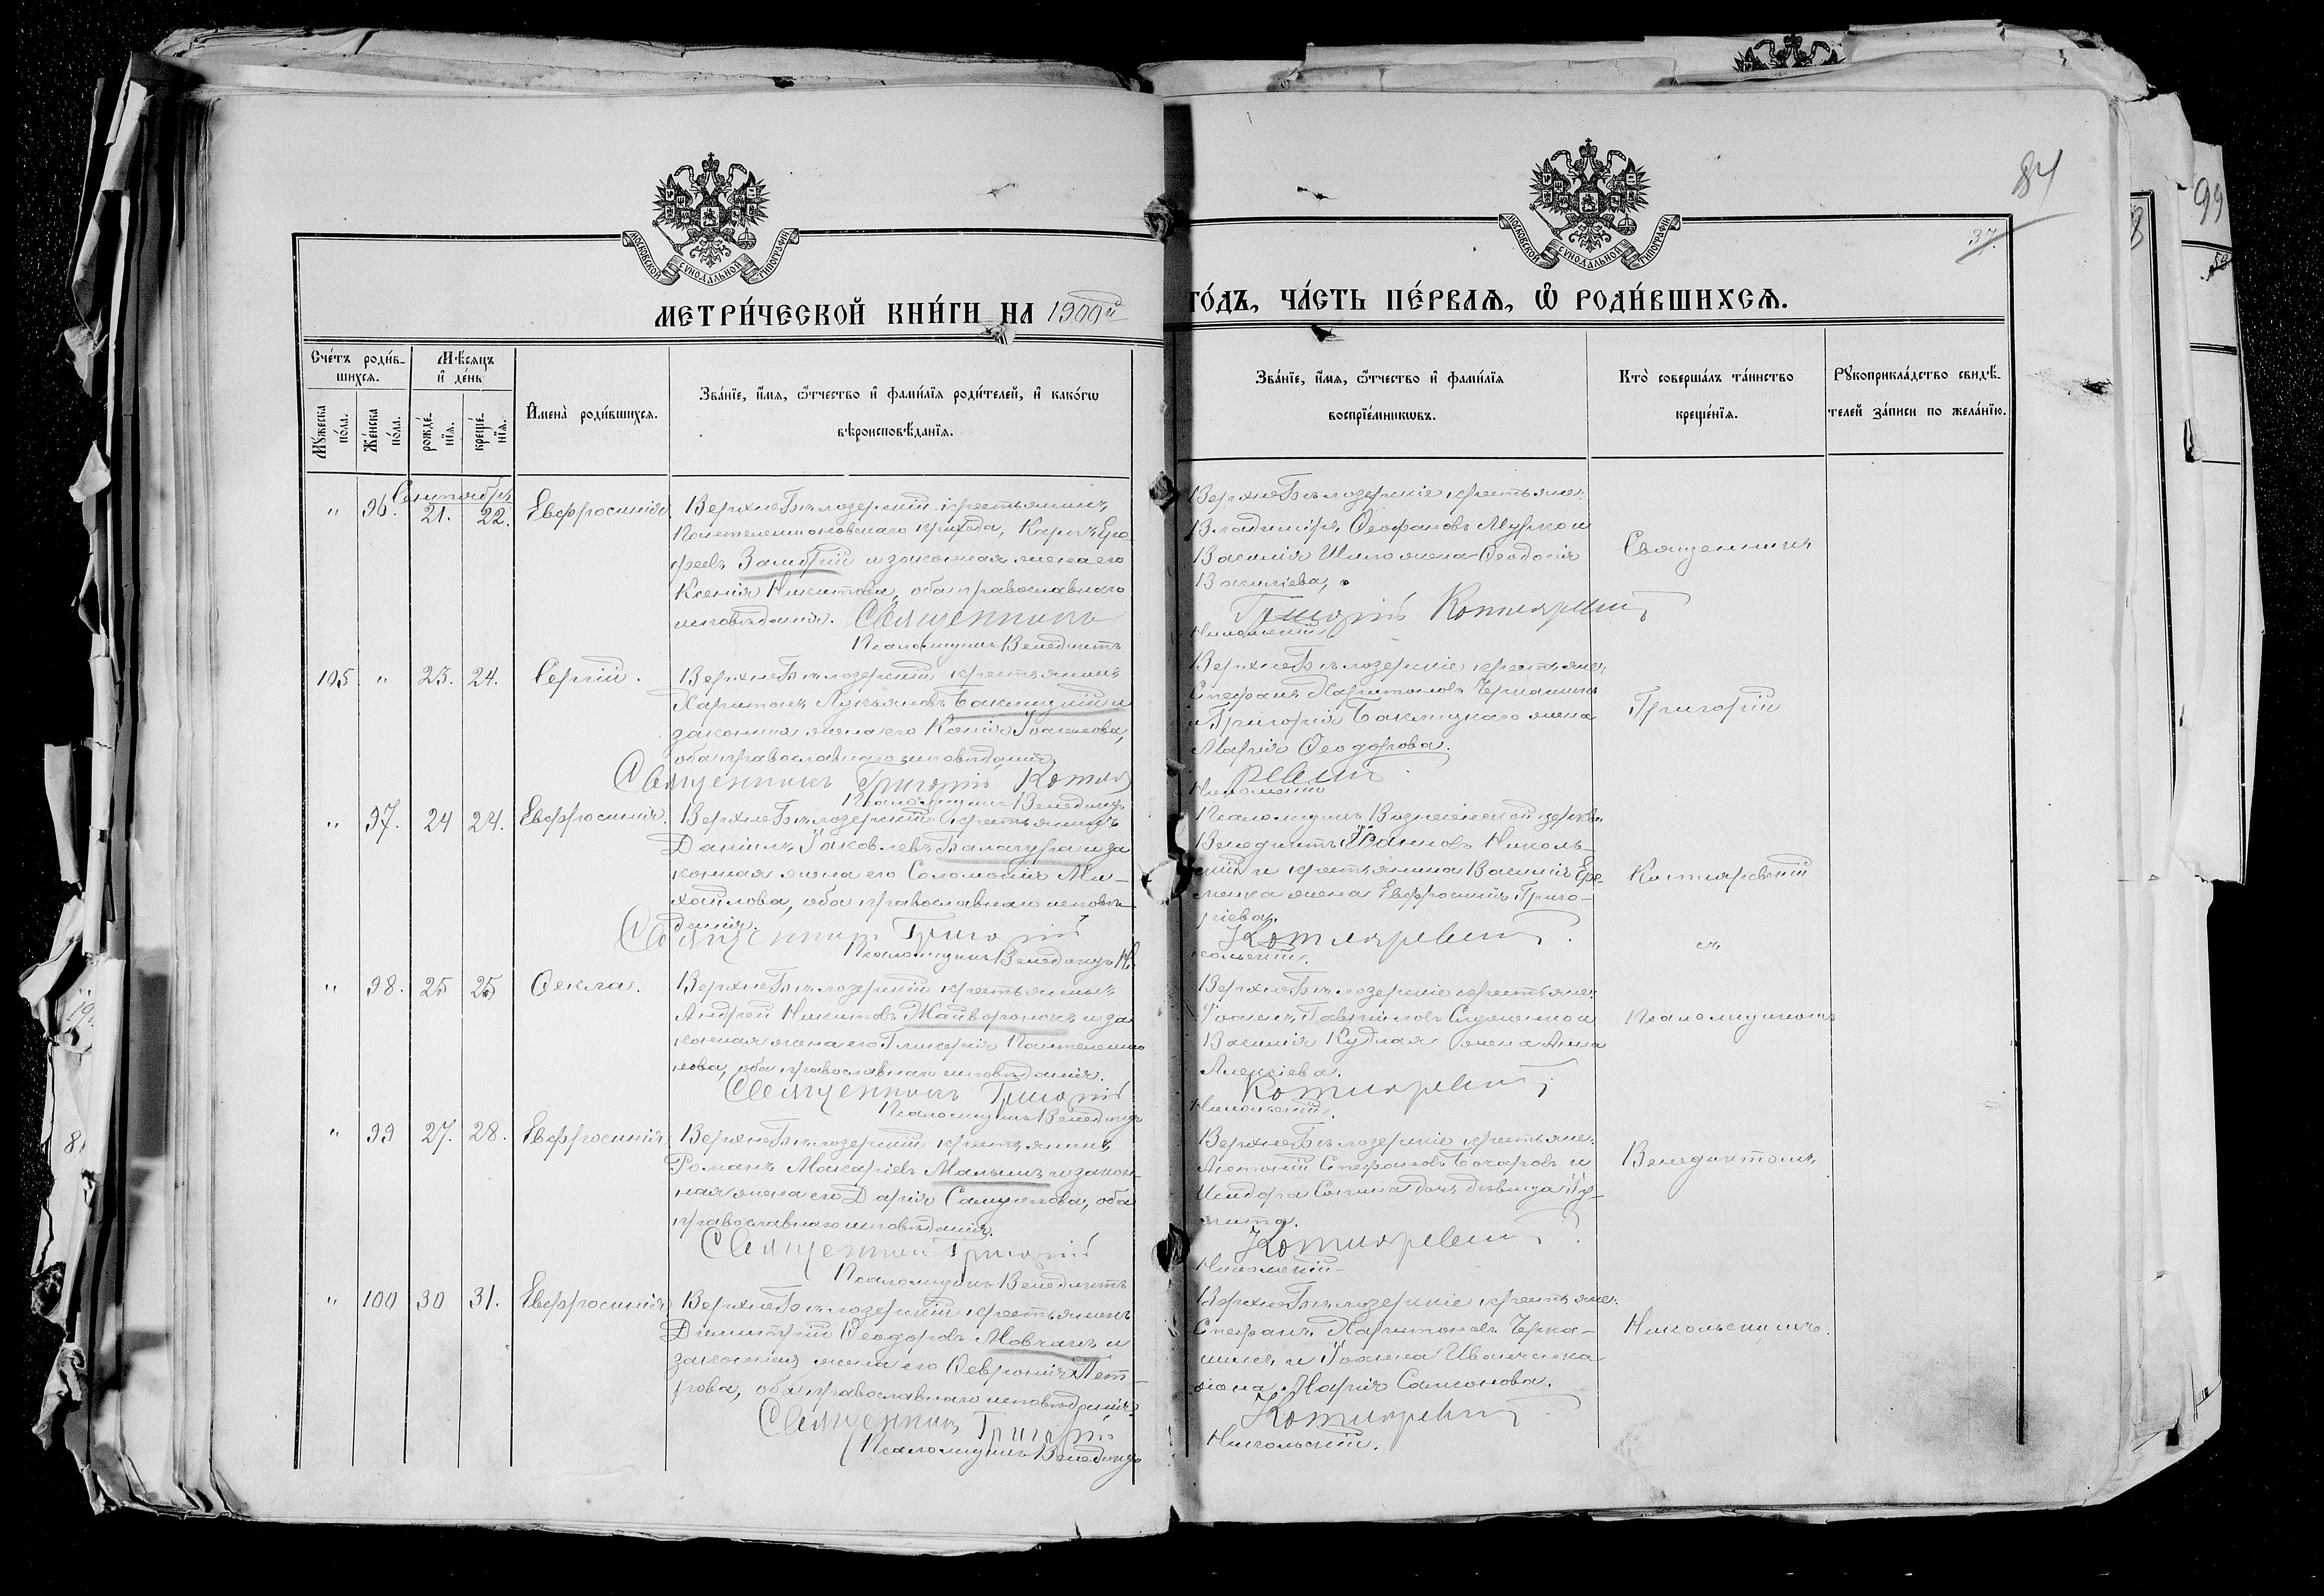 84
99
37.
МОСКОВСКОЙ СѴНОДАЛЬНОЙ ТИПОГРАФІИ
МОСКОВСКОЙ СѴНОДАЛЬНОЙ ТИПОГРАФІИ
МЕТРИ́ЧЕСКОЙ КНИ́ГИ НА 1900й
ГО́ДЪ, ЧА́СТЬ ПЕ́РВАѦ, Ѿ РОДИ́ВШИХСѦ.
Сче́тъ роди́в-
шихсѧ.
Мꙋжеска по́ла.
Же́нска по́ла.
Мѣ́сѧцъ
и҆ де́нь
рожде́-
нїѧ.
креще́-
нїѧ.
И҆мена̀ роди́вшихсѧ.
Зва́нїе, и҆́мѧ, ѻ҆́тчество и҆ фами́лїѧ роди́телей, и҆ како́гѡ
вѣроисповѣ́данїѧ.
Зва́нїе, и҆́мѧ, ѻ҆́тчество и҆ фами́лїѧ
воспрїе́мникѡвъ.
Кто̀ соверша́лъ та́инство
креще́нїѧ.
Рꙋкоприкла́дство свидѣ́-
телей за́писи по жела́нїю.
Сентябрь
" 96. 21. 22. Евфросинія
ВерхнеБѣлозерскій крестьянинъ
Пантелеимоновскаго прихода, Карпъ Еро-
феевъ и законная жена его
Ксенія Никитова, оба православнаго
исповѣданія. Священникъ
Псаломщикъ Венедиктъ
ВерхнеБѣлозерскіе крестьяне:
Владиміръ Ѳеофановъ Мурко и
Василія Шило жена Ѳеодосія
Василіева,
Григорій Котляревскій
Никольскій
Священникъ
105 " 23. 24. Сергій.
ВерхнеБѣлозерскій крестьянинъ
Харитонъ Лукьяновъ Баклицкій и
законная жена его Ксенія Іоаннова,
оба православнаго исповѣданія.
Священникъ Григорій Котля
Псаломщикъ Венедиктъ
ВерхнеБѣлозерскіе крестьяне:
Стефанъ Харитоновъ Чернашинъ
и Григорія Баклицкаго жена
Марія Ѳеодорова.
ревскій
Никольскій
Григорій
" 97. 24 24. Евфросинія.
ВерхнеБѣлозерскій крестьянинъ
Даніилъ Іаковлевъ Балагура и за
конная жена его Соломонія Ми-
хаилова, оба православнаго исповѣ-
данія.
Священникъ Григорій
Псаломщикъ Венедиктъ Н.
Псаломщикъ Вознесенской церкви
Венедиктъ Іоанновъ Николь-
скій и крестьянина Василія Ере-
менка жена Евфросинія Григо-
ріева.
Котляревскій.
кольскій.
Котляревскій
съ
" 98. 25 25 Ѳекла.
ВерхнеБѣлозерскій крестьянинъ
Андрей Никитовъ Жайворонокъ и за
конная жена его Гликерія Пантелеимо
нова, оба православнаго исповѣданія.
Священникъ Григорій
Псаломщикъ Венедиктъ
ВерхнеБѣлозерскіе крестьяне:
Іоаннъ Гавріиловъ и
Василія Кудлая жена Анна
Алексіева.
Котляревскій
Никольскій.
Псаломщикомъ
" 99 27. 28. Евфросинія
ВерхнеБѣлозерскій крестьянинъ
Романъ Макаріевъ Малышъ и закон-
ная жена его Дарія Самуилова, оба
православнаго исповѣданія.
Священникъ Григорій
Псаломщикъ Венедиктъ
ВерхнеБѣлозерскіе крестьяне:
Антоній Стефановъ Бочаровъ и
Исидора дочь дѣвица Іу-
литта.
Котляревскій.
Никольскій
Венедиктомъ
" 100 30 31. Евфросинія
ВерхнеБѣлозерскій крестьянинъ
Димитрій Ѳеодоровъ Мовчанъ и
законная жена его Ѳевронія Пет-
рова, оба православнаго исповѣданія.
Священникъ Григорій
Псаломщикъ Венедиктъ
ВерхнеБѣлозерскіе крестьяне:
Стефанъ Харитоновъ Черна-
шинъ и Іоанна Иванченка
жена Марія Самсонова.
Котляревскій
Никольскій.
Никольскимъ.